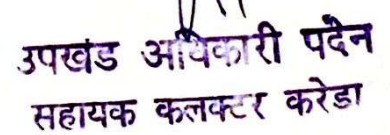 उपखंड अधिकारी पदेन
सहायक कलक्टर करेडा